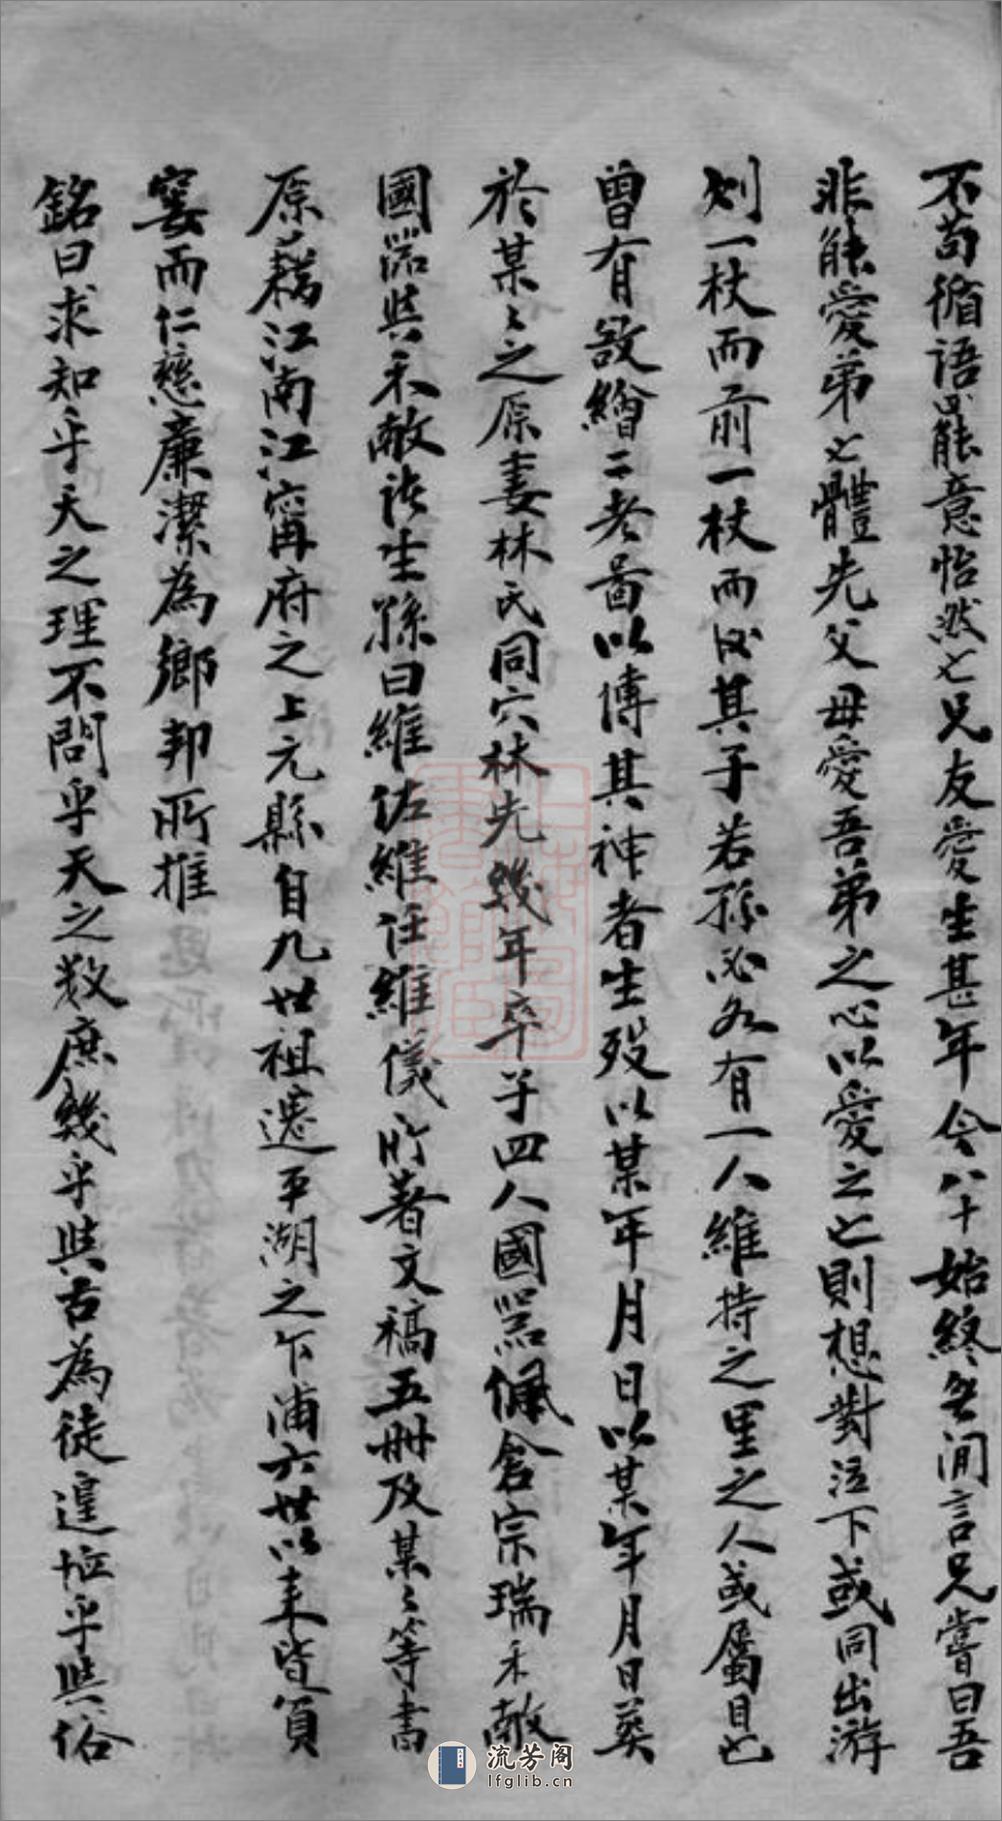 不苟循语罷意怡然之兄友愛生甚年令八十始終無间言兄嘗曰吾
非能愛弟之體先父母愛吾弟之心以愛之之則想對泣下或同出游
則一杖而前一杖而後其子若孫必各有一人維持之里之人或屬目之
曾有欲繪二老啚以傳其神者生歿以某年月日以某年月日葬
於某〻之原妻林氏同穴林先幾年卒子四人國器佩倉宗瑞禾敵
國器與禾敵皆生孫曰維佐維任維儀所著文稿五冊及某〻等書
原藉江南江甯府之上元縣自九世祖遷平湖之乍浦六世以来皆貧
窶而仁慈亷潔為鄉邦所推
銘曰求知乎天之理不問乎天之数庶幾乎與古為徒遑恤乎與俗
流芳阁
lfglib.cn